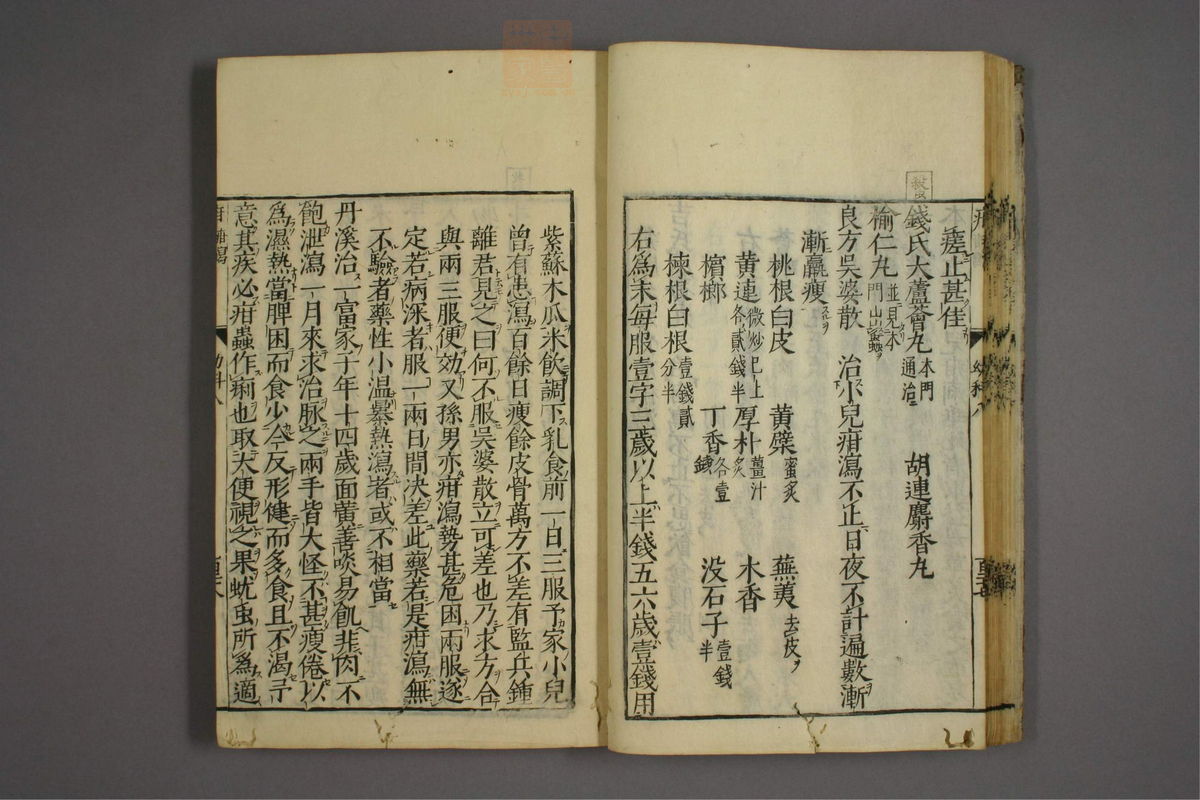 瘥止甚佳
錢氏大蘆薈丸本門通治 胡連麝香丸
榆仁丸並見本門出蟲
良方吳婆散 治小兒疳瀉不止日夜不計遍數漸
漸羸瘦
桃根白皮 黃蘗蜜炙 蕪荑去皮
黃連微炒已上各貳錢半 厚朴薑汁炙 木香
檳榔 丁香各壹錢 没石子壹錢半
楝根白根壹錢貳分半
右爲末每服壹字三歲以上半錢五六歲壹錢用
紫蘇木瓜米飲調下乳食前一日三服予家小兒
曾有患瀉百餘日瘦餘皮骨萬方不差有監兵鍾
離君見之曰何不服吳婆散立可差也乃求方合
與兩三服便効又孫男亦疳瀉勢甚危困兩服遂
定若病深者服一兩日間决差此藥若是疳瀉無
不驗者藥性小温暴熱瀉者或不相當
丹溪治一富家子年十四歲面黃善啖易飢非肉不
飽泄瀉一月來求治脉之兩手皆大怪不甚瘦倦以
爲濕熱當脾困而食少今反形健而多食且不渴予
意其疾必疳蟲作痢也取大便視之果蚘虫所爲適
幼科八